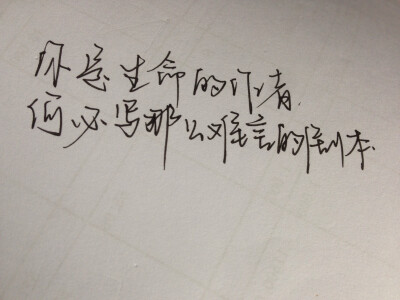 你是生命的作者.
何必写那么难言的剧本.